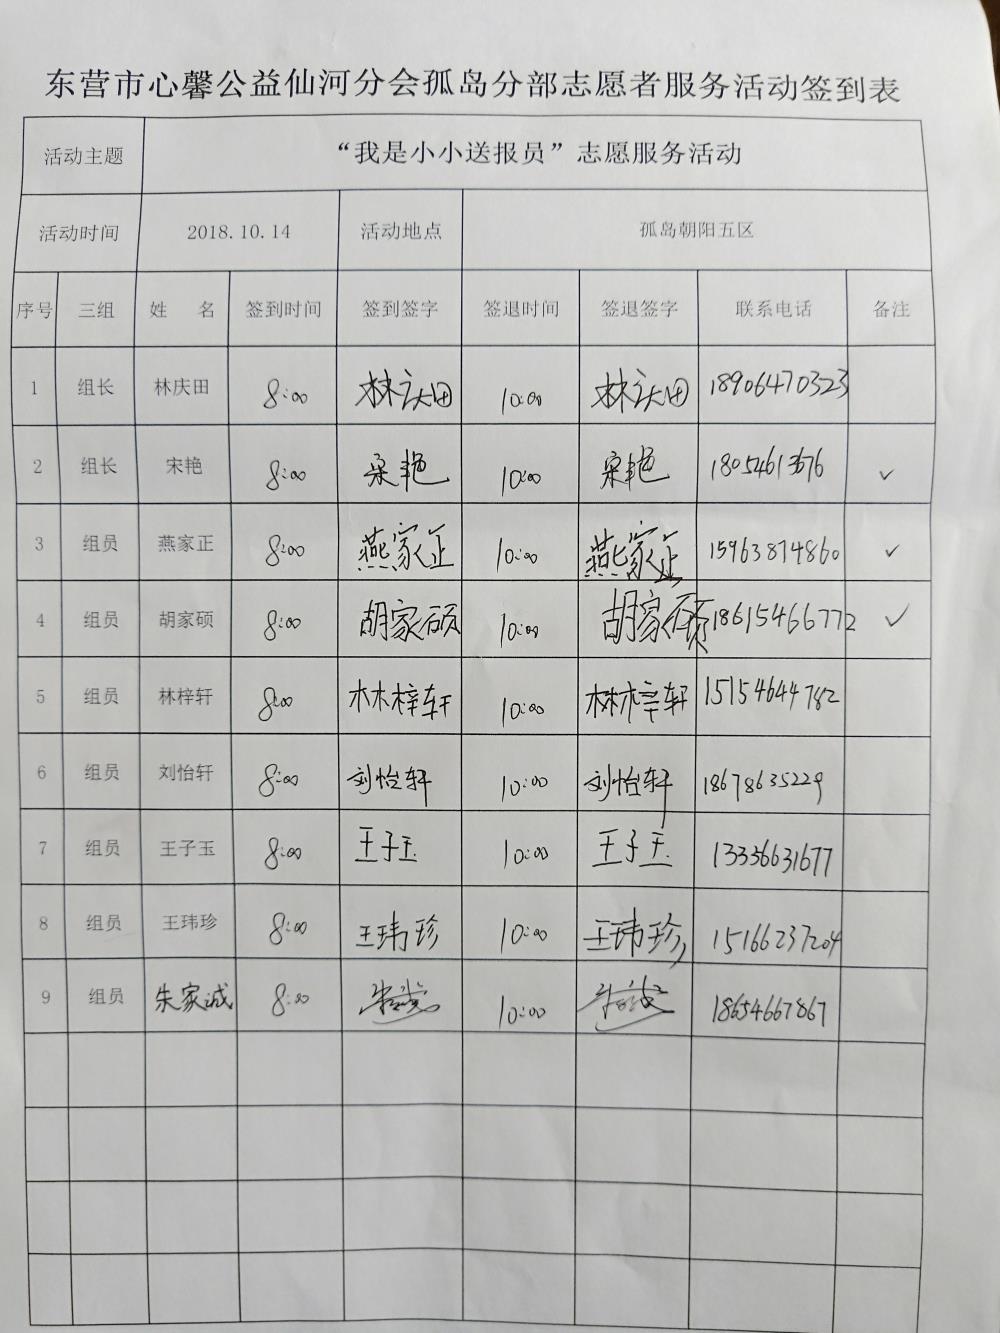 东营市心馨公益仙河分会孤岛分部志愿者服务活动签到表
活动主题 “我是小小送报员”志愿服务活动
活动时间 2018.10.14 活动地点 孤岛朝阳五区
序号 三组 姓 名 签到时间 签到签字 签退时间 签退签字 联系电话 备注
1 组长 林庆田 8:00 林庆田 10:00 林庆田 18906470323
2 组长 宋艳 8:00 宋艳 10:00 宋艳 18054613676 ✓
3 组员 燕家正 8:00 燕家正 10:00 燕家正 15963874860 ✓
4 组员 胡家硕 8:00 胡家硕 10:00 胡家硕 18615466772 ✓
5 组员 林梓轩 8:00 林梓轩 10:00 林梓轩 15154644782
6 组员 刘怡轩 8:00 刘怡轩 10:00 刘怡轩 18678635229
7 组员 王子玉 8:00 王子玉 10:00 王子玉 13336631677
8 组员 王玮珍 8:00 王玮珍 10:00 王玮珍 15166237204
9 组员 朱家诚 8:00 10:00 18654667867